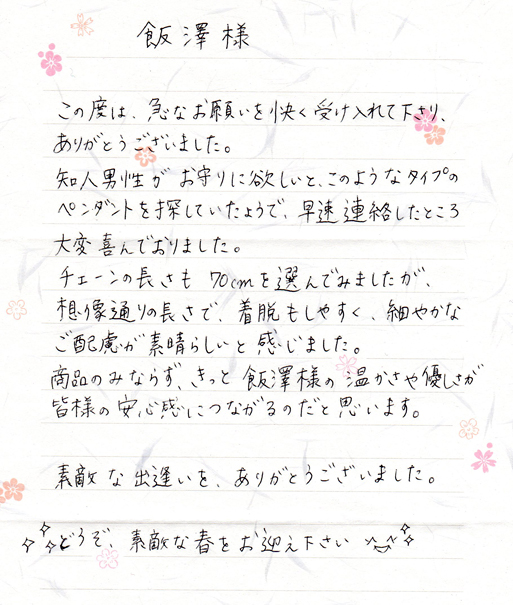 飯澤様
この度は、急なお願いを快く受け入れて下さり、
ありがとうございました。
知人男性が お守りに欲しいと、このようなタイプの
ペンダントを探していたようで、早速連絡したところ
大変喜んでおりました。
チェーンの長さも 70cmを選んでみましたが、
想像通りの長さで、着脱もしやすく、細やかな
ご配慮が素晴らしいと感じました。
商品のみならず、きっと飯澤様の温かさや優しさが
皆様の安心感につながるのだと思います。
素敵な出逢いを、ありがとうございました。
どうぞ、素敵な春をお迎え下さい